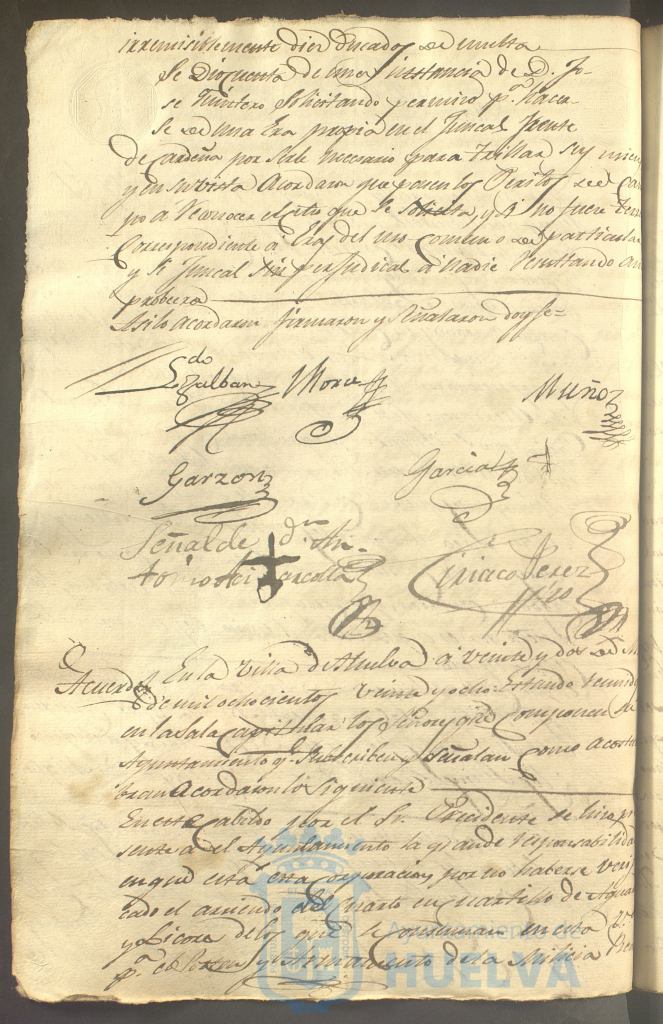 irremisiblemente diez Ducados de multa
Se Dio cuenta de una instancia de D. Jo-
se Quintero Solicitando permiso pª. hacer
se de una Era propia en el Juncal frente
de Cardeña por serle necesario para trillar sus
y en su vista Acordaron que pasen los Peritos de Cam
po a reconocer el sitio que se solicita, y si no fuere
Correspondiente á Eras del uso comun o de particular
y si Juncal sin perjudical á nadie resultando
probecho
Asi lo acordaron firmaron y Señalaron doy fe=
Ldo
Zalban Mora Muñoz
Garzon Garcia
Señal de dn An-
tonio
Ciriaco Perez
Acuerdo En la Villa de Huelva á veinte y dos de
de mil ochocientos veinte y ocho: Estando reunidos
en la Sala Capitular los Señores que componen el
Ayuntamiento q. subscriben y señalan como acostu
bran Acordaron lo siguiente
En este Cabildo por el Sr. Presidente se hizo pre
sente a el Ayuntamiento la grande responsabilidad
en que está esta Corporacion por no haberse verifi
cado el arriendo del quarto en quartillo de Aguard
y Licores de los que se consuman en esta
pª. el y Armamento de la Milicia
Ayuntamiento de
HUELVA